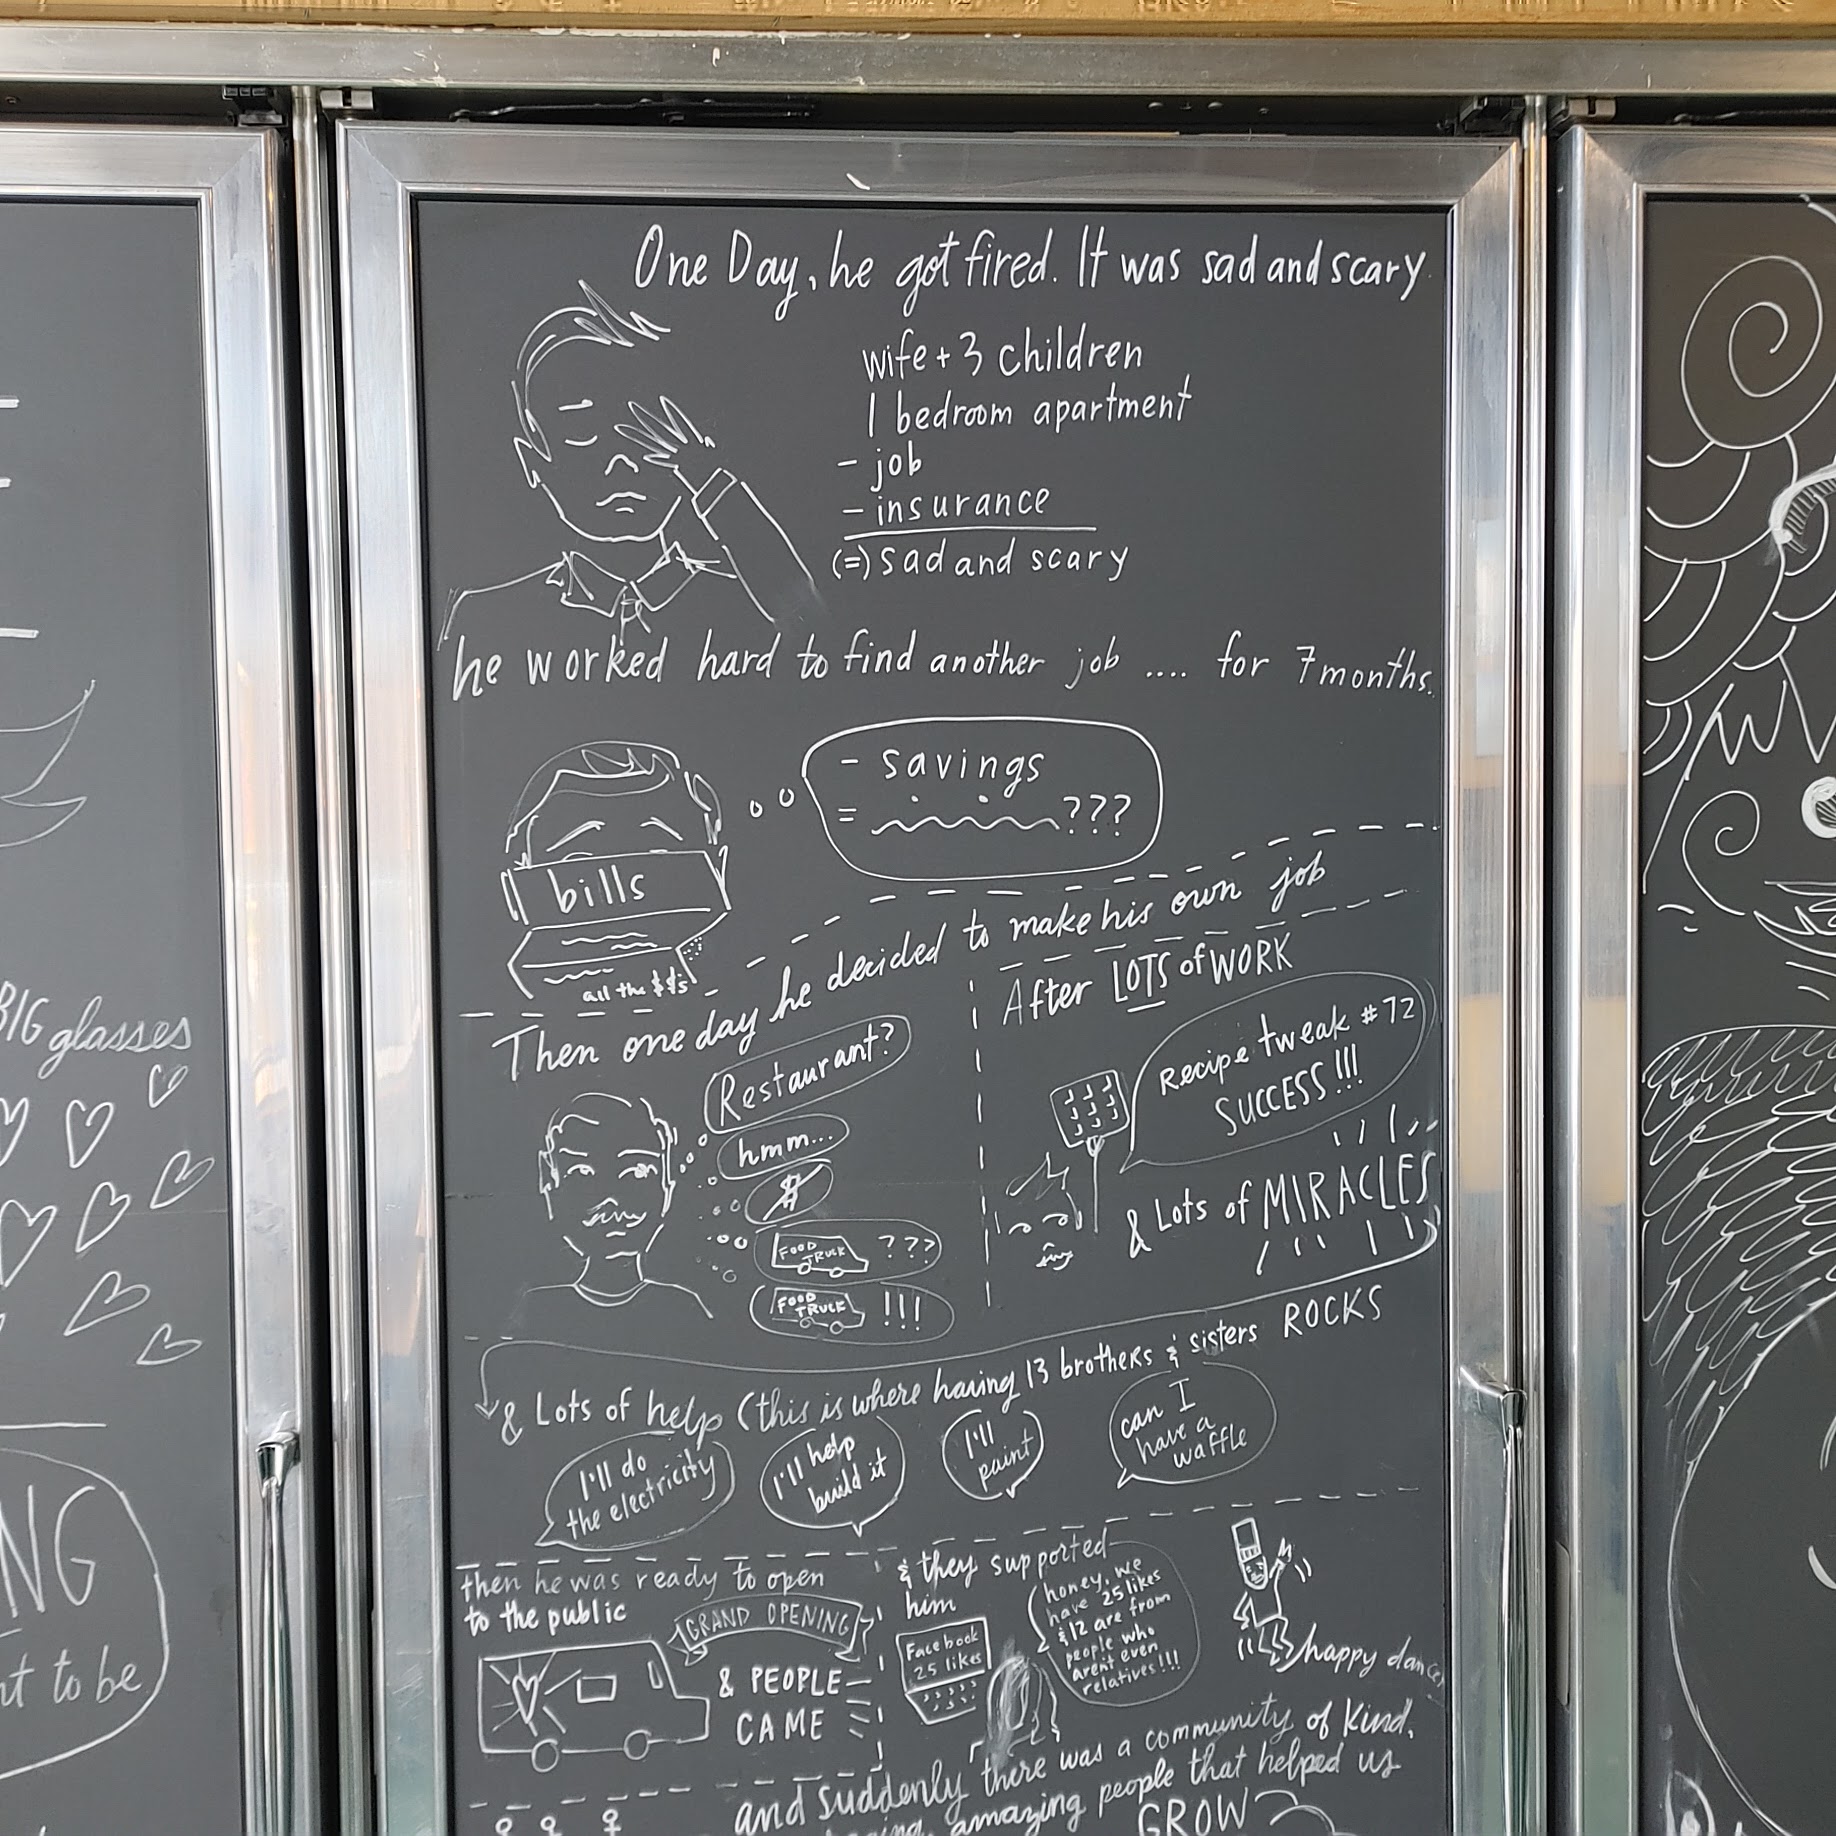 One Day, he got fired. It was sad and scary.
wife + 3 children
1 bedroom apartment
- job
- insurance
(=) sad and scary
he worked hard to find another job .... for 7 months.
- savings
= ???
bills
all the $$s
Then one day he decided to make his own job
Restaurant?
hmm...
$
FOOD TRUCK ???
FOOD TRUCK !!!
After LOTS of WORK
Recipe tweak #72
SUCCESS!!!
& Lots of MIRACLES
& Lots of help (this is where having 13 brothers & sisters ROCKS
I'll do
the electricity
I'll help
build it
I'll
paint
can I
have a
waffle
then he was ready to open
to the public
GRAND OPENING
& PEOPLE
CAME
& they supported
him
Facebook
25 likes
honey, we
have 25 likes
& 12 are from
people who
aren't even
relatives!!!
happy dance
and suddenly there was a community of kind,
amazing people that helped us
GROW
BIG glasses
NG
to be